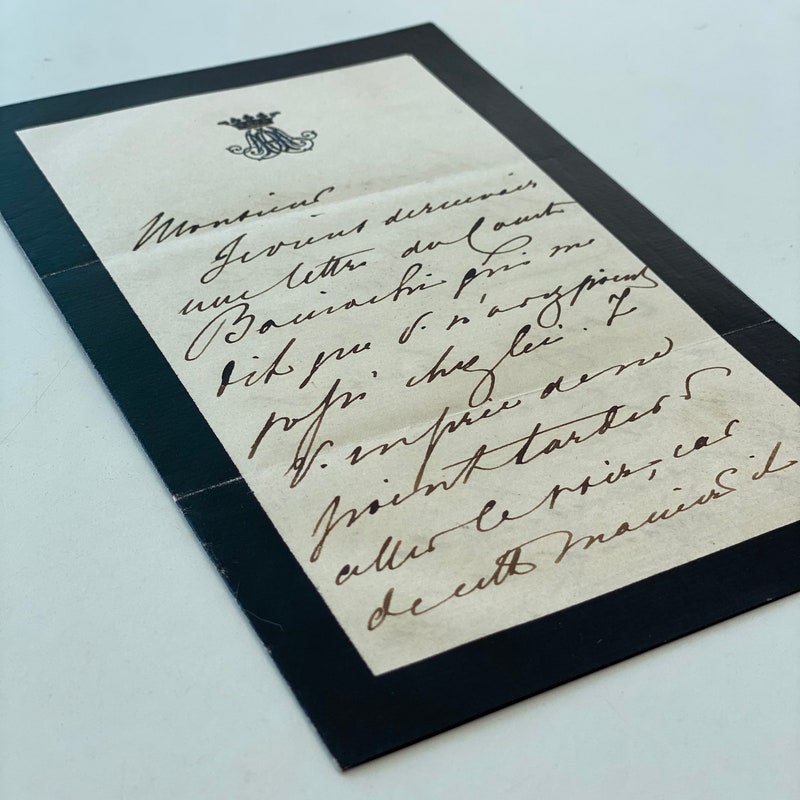 Monsieur
Je viens de recevoir
une lettre du Comte
qui me
dit que V. n'avez point
passé chez lui. Je
V. en prie de ne
point tarder à
aller le voir, car
de cette manière il